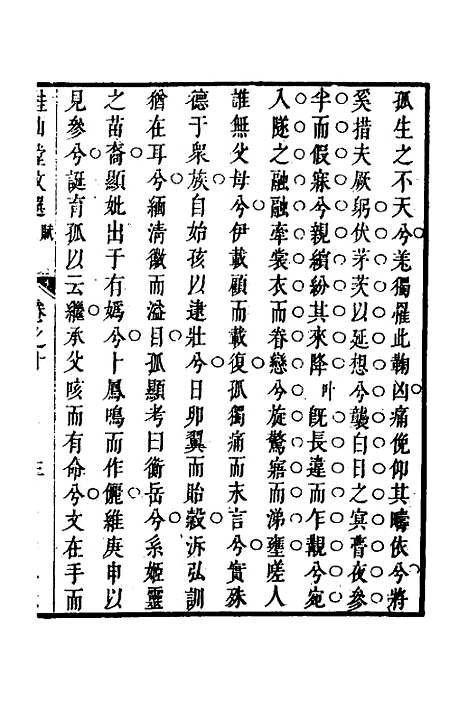 孤生之不天兮羌獨罹此鞠凶痛俛仰其疇依兮將
奚措夫厥躬伏茅茨以延想兮襲白日之㝠瞢夜參
半而假寐兮親繽紛其來降叶旣長違而乍觀兮宛
入隧之融融牽裳衣而眷戀兮旋驚寤而涕壅嗟人
誰無父母兮伊載顧而載復孤獨痛而末言兮實殊
德于衆族自始孩以逮壯兮日卵翼而貽穀泝弘訓
猶在耳兮緬清徽而溢目孤顯考曰衡岳兮系姬靈
之苗裔顯妣出于有嬀兮卜鳳鳴而作儷維庚申以
見參兮誕育孤以云繼承父咳而有命兮文在手而
文選 賦 卷之十 三